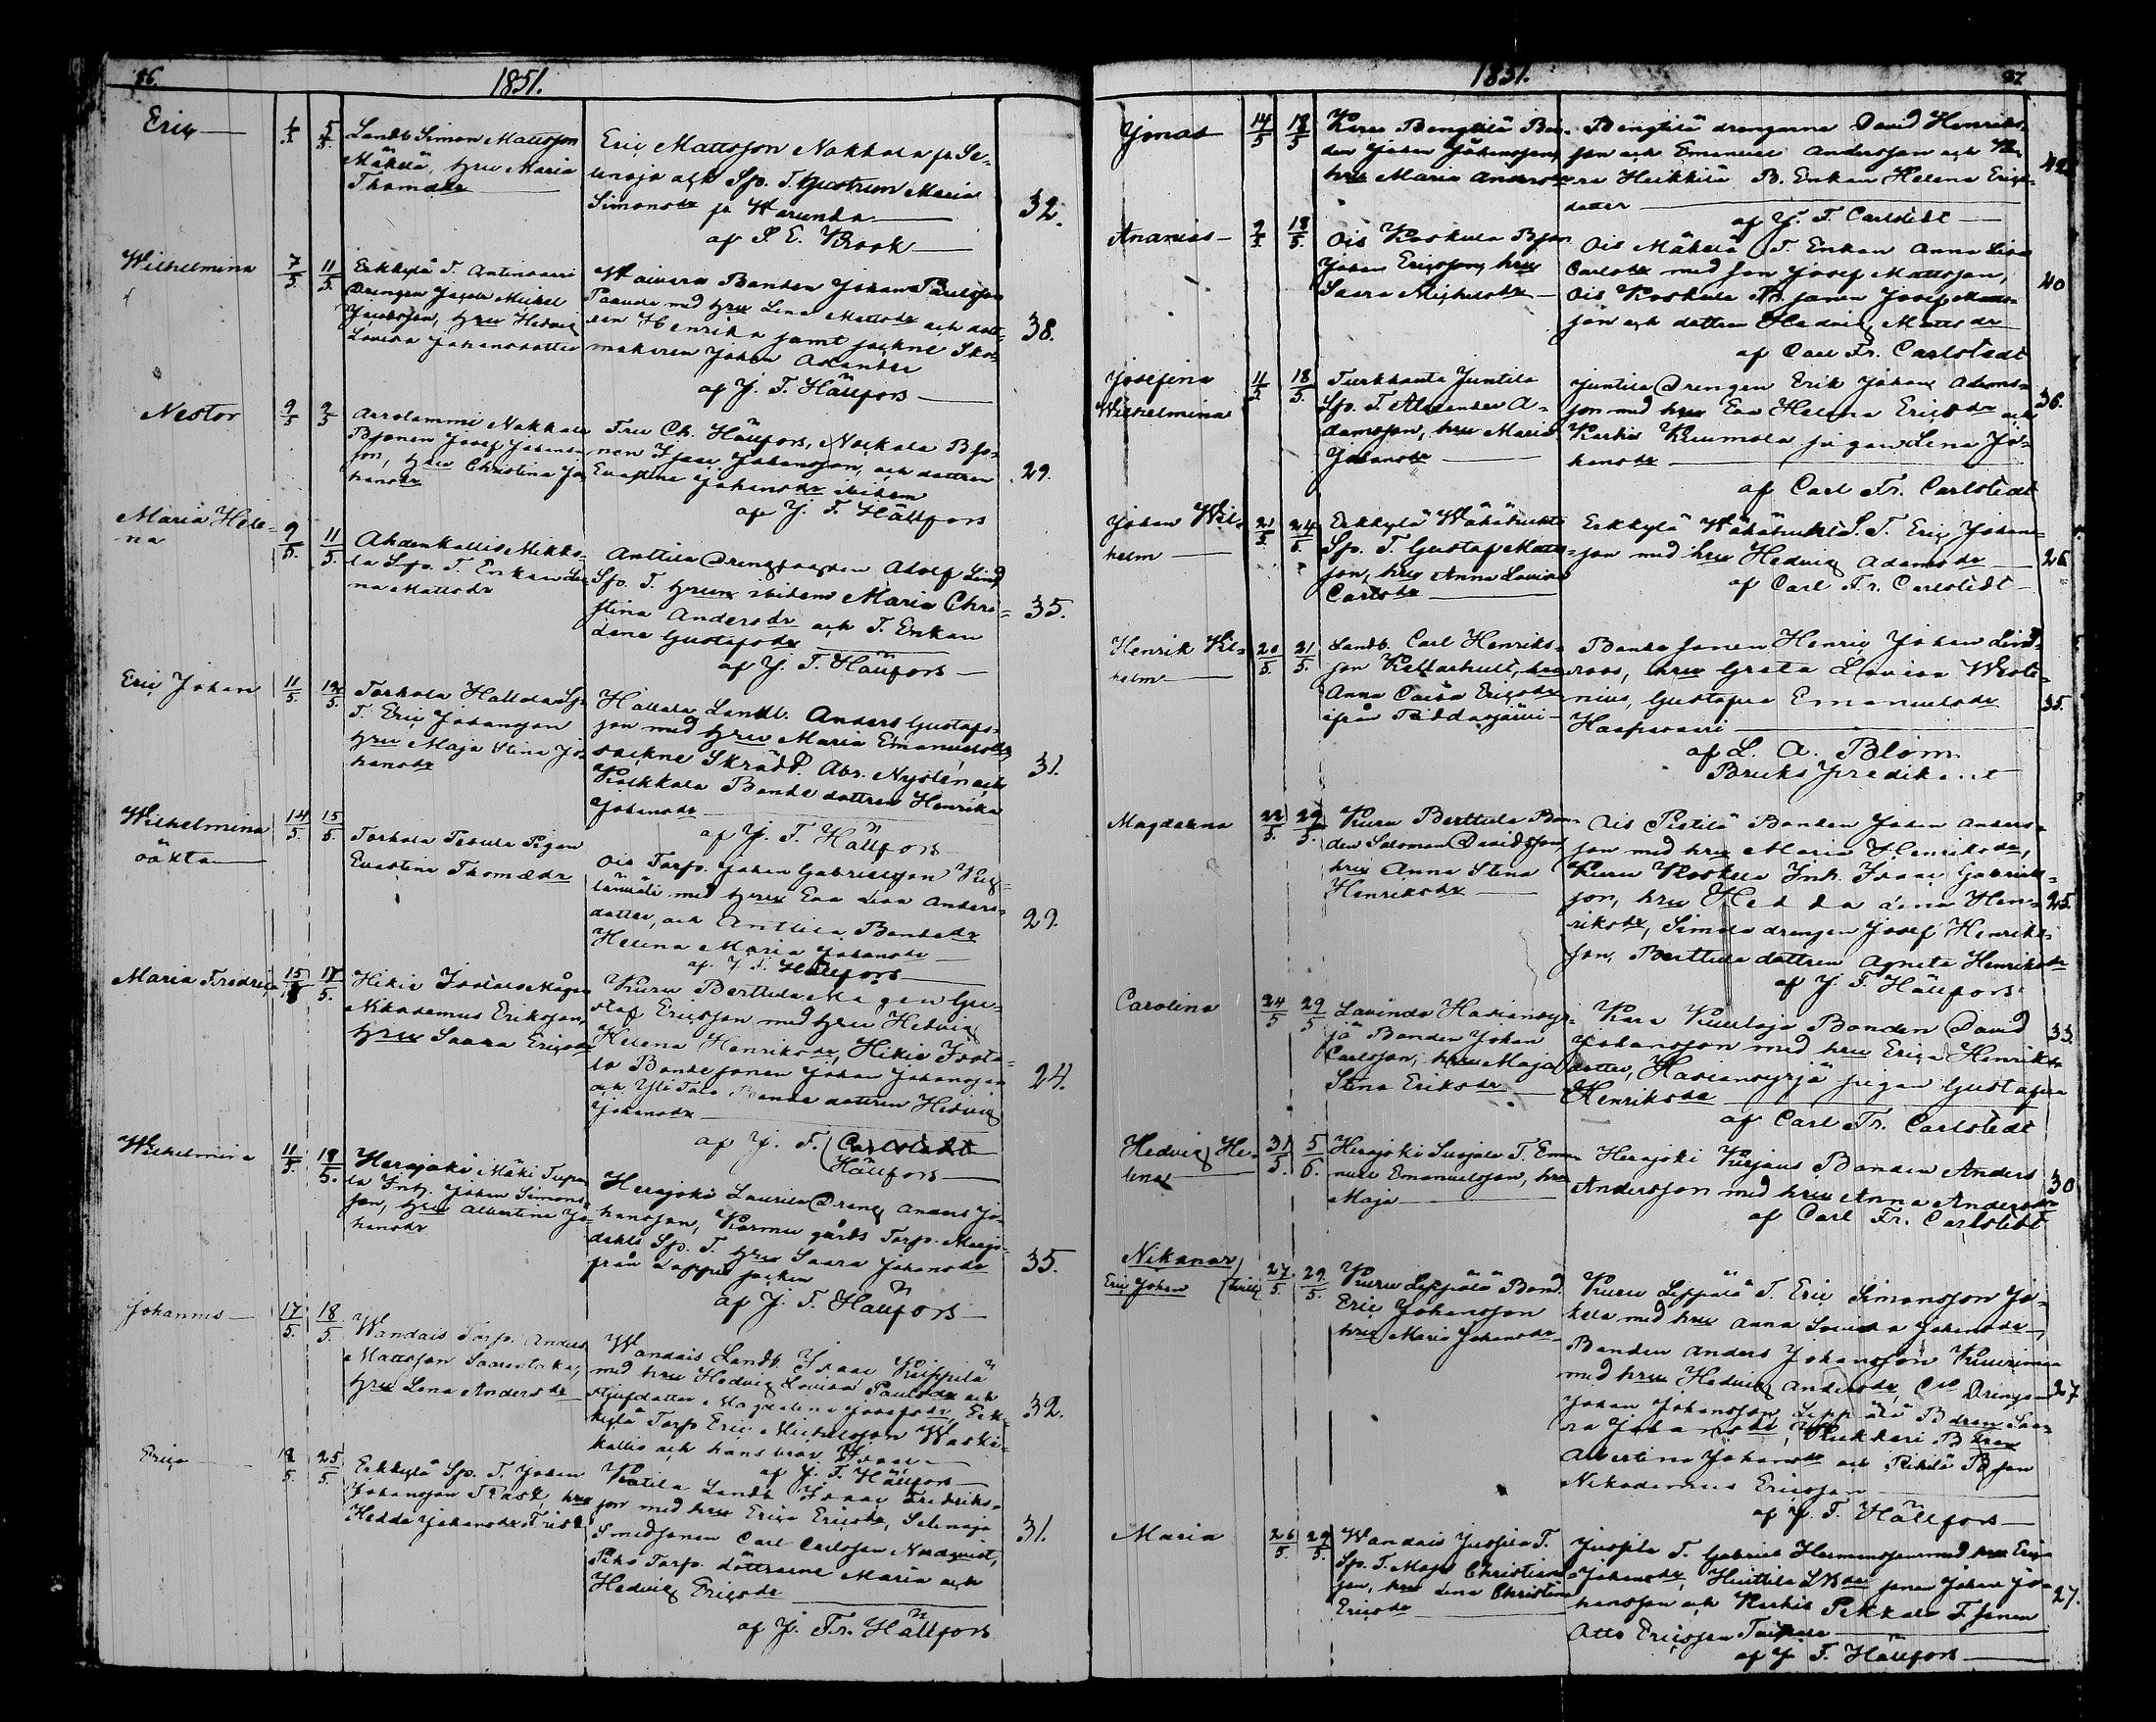 86.
1851.
Eric
1/5
5/5
Landb Simon Mattsson
Mäkelä, hru Maria
Thomædr
Eric Mattsson Nakkala fr Se-
Sp. T. hustrun Maria
Simonsdr fr Warunda
af P. E. Brook
32.
Wilhelmina
7/5
11/5
Erkkylä T. Antinsaari
Drengen Jacob Michel
Jacobsson, hru Hedvig
Lovisa Johansdotter
Bonden Johan Paulsson
Paavola med hru Lena Mattsdr och dott-
ren Henrika samt sockne Sko-
makaren Johan
af J. T. Hällfors
38.
Nestor
9/5
9/5
Aarolammi Nakkala
Bsonen Josef Johans-
son, hru Christina Jo-
hansdr
Fru Ch. Hällfors, Nackala Bso-
nen Isaac Johansson, och dottren
Evastina Johansdr ibidem
af J. T. Hällfors
29.
Maria Hele-
na
9/5
11/5
Ahdenkallis Mikko-
la Sp. T. Enkan Le-
na Mattsdr
Anttila Dreng Adolf Lind
Sp. T. hrun ibidem Maria Chri-
stina Andersdr och T. Enkan
Gustafsdr
af J. T. Hällfors
35.
Eric Johan
11/5
12/5
Torhola Hattola Sp.
T. Eric Johansson
hru Maja Stina Jo-
hansdr
Hattala Landb. Anders Gustafs-
son med hru Maria Emanuelsdr,
sockne Skrädd. Abr. Nysten och
Bonde dottren Henrika
Johansdr
af J. T. Hällfors
31.
Wilhelmina
oäkta
14/5
15/5
Torhola Pigan
Evastina Thomædr
Ois Torp. Johan Gabrielsson
med hru Eva Lisa Anders-
dotter, och Anttila Bondedr
Helena Maria Johansdr
af J. T. Hällfors
29.
Maria Fredrica
15/5
18/5
Hikiä Mågen
Nikodemus Eriksson,
hru Saara Ericsdr
Kuru Berttula Mågen Gu-
staf Ericsson med hru Hedvig
Helena Henriksdr, Hikiä
Bondesonen Johan Johansson
och Yli Talo Bonde dottren Hedvig
Johansdr
af J. T. Carlstedt
Hällfors
24.
Wilhelmina
11/5
18/5
Herajoki Mäki Tupa-
la Inh. Johan Simons-
son, hru Albertina Jo-
hansdr
Herajoki Laurila Dreng Anders Jo-
hansson, Karmu gårds Torp.
Sp. T. hru Saara Johansdr
från Loppis socken
af J. T. Hällfors
35.
Johannes
17/5
18/5
Wandais Torp. Anders
Mattsson
hru Lena Andersdr
Wandais Landb. Isaac
med hru Hedvig Lovisa Paulsdr och
styfdotter Magdalena Josefsdr, Erk-
kylä Torp Eric Michelsson Waski-
kallio och hans bror Isaac
af J. T. Hällfors
32.
Erica
18/5
25/5
Erkkylä Sp. T. Johan
Johansson Rask, hru
Hedda Johansdr Frisk
Landb Isaac Fredriks-
son med hru Erica Ericsdr, Selenoja
Smedsonen Carl Carlsson Nordqvist,
Torp. döttrarne Maria och
Hedvig Ericsdr
af J. Fr. Hällfors
31.
1851.
87
Jonas
14/5
18/5
Kuru Bengtilä Bon-
den Johan Johansson,
hru Maria Andersdr
Bengtilä drengarne David Henriks-
son och Emanuel Andersson och
Heikkilä B. Enkan Helena Erics-
dotter
af J. T. Carlstedt
42
Ananias
9/5
18/5
Ois Koskula Bson
Johan Ericsson, hru
Saara Michelsdr
Ois Mäkelä T. Enkan Anna Lisa
Carlsdr med son Josef Mattsson,
Ois Koskula B. sonen Josef Matts-
son och dottren Hedvig Mattsdr
af Carl Fr. Carlstedt
40
Josefina
Wilhelmina
11/5
18/5
Turkhauta Juntila
Sp. T. Alexander A-
damsson, hru Maria
Johansdr
Juntila Drengen Erik Johan Adams-
son med hru Eva Helena Ericsdr och
Karhis Kuumola pigan Lena Jo-
hansdr
af Carl Fr. Carlstedt
36.
Johan Wil-
helm
21/5
24/5
Erkkylä Wähähuhta
Sp. T. Gustaf Matts-
son, hru Anna Lovisa
Carlsdr
Erkkylä Wähähuhta S. T. Eric Johans-
son med hru Hedvig Adamsdr
af Carl Fr. Carlstedt
26
Henrik Wil-
helm
20/5
21/5
Landb. Carl Henriks-
son Kettarhult, hru
Anna Caisa Ericsdr
ifrån
Bonde sonen Henric Johan Lind-
roos, hru Greta Lovisa Weste-
nius, Gustafva Emanuelsdr
Haapasaari
af L. A. Blom
Bruks predikant
35.
Magdalena
22/5
29/5
Kuru Berttula Bon-
den Salomon Davidsson
hru Anna Stina
Henriksdr
Ois Pietilä Bonden Johan Anders-
son med hru Maria Henriksdr,
Kuru Koskela Inh. Isaac Gabriels-
son, hru Hedda Lena Hen-
riksdr, Simola drengen Josef Henriks-
son, Berttula dottren Agneta Henriksdr
af J. T. Hällfors
25.
Carolina
24/5
29/5
Lavinda Hariansyr-
jä Bonden Johan
Carlsson, hru Maja
Stina Eriksdr
Kara Kuuloja Bonden David
Johansson med hru Erica Henriks
dotter, Hariansyrjä pigan Gustafva
Henriksdr
af Carl Fr. Carlstedt
33.
Hedvig He-
lena
31/5
5/6
Herajoki Susjala T. Ema-
nuel Emanuelsson, hru
Maja
Herajoki Bonden Anders
Andersson med hru Anna Andersdr
af Carl Fr. Carlstedt
30
Nikanor
Eric Johan
27/5
29/5
Kuru Leppälä Bond.
Eric Johansson
hru Maria Johansdr
Kuru Leppälä T. Eric Simonsson Jo-
kela med hru Anna Lovisa Johansdr,
Bonden Anders Johansson
med hru Hedvig Andersdr, Drengen
Johan Johansson, Leppälä Bdren Saa-
ra Johansdr,
Albertina Johansdr och Bson
Nikodemus Ericsson
af J. T. Hällfors
27
Maria
26/5
29/5
Wandais Jussila T.
Sp. T. Christian-
son, hru Lena Christina
Ericsdr
Jussila T. Gabriel Hermansson med hru Erica
Johansdr, Huttila sonen Johan Jo-
hansson och Karhis Pekkala T. sonen
Otto Ericsson
af J. T. Hällfors
27.